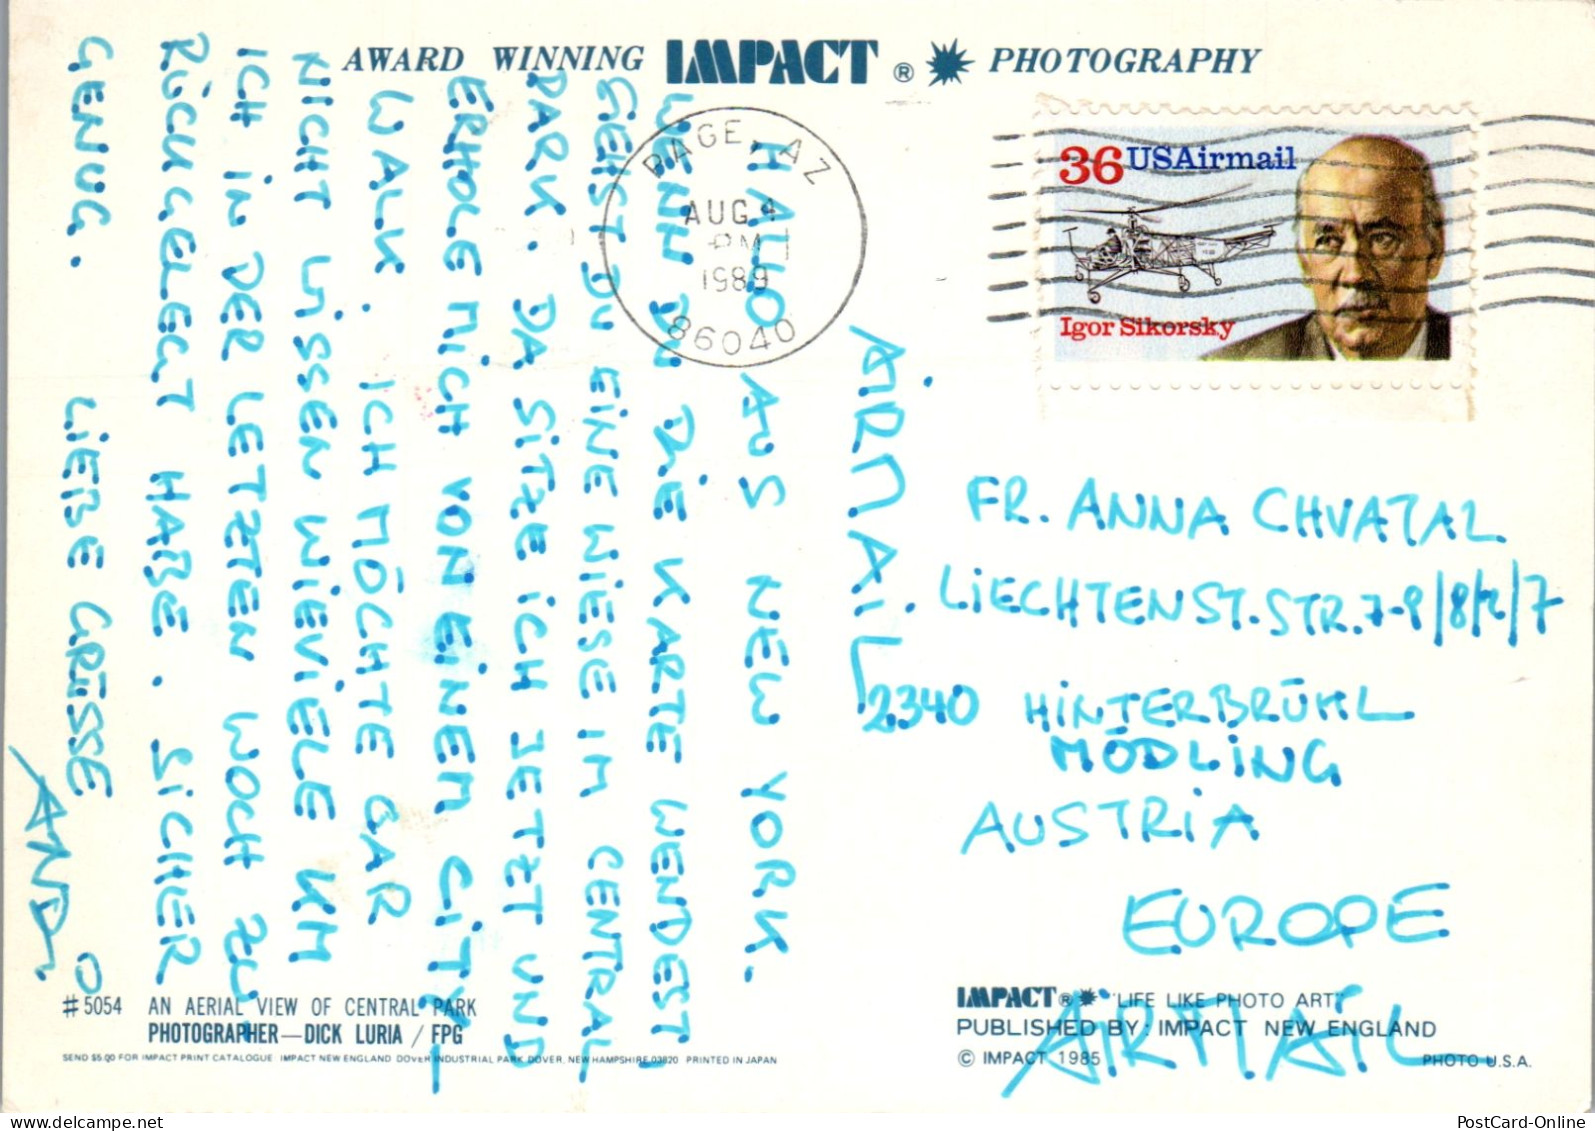 AWARD WINNING IMPACT ® PHOTOGRAPHY
PAGE, AZ
AUG 4
PM
1989
86040
36 USAirmail
Igor Sikorsky
HALLO AUS NEW YORK.
WENN DU DIE KARTE WENDEST
SIEHST DU EINE WIESE IM CENTRAL
PARK. DA SITZE ICH JETZT UND
ERHOLE MICH VON EINEM CITY-
WALK. ICH MÖCHTE GAR
NICHT WISSEN WIEVIELE KM
ICH IN DER LETZTEN WOCH ZU-
RÜCKGELEGT HABE. SICHER
GENUG. LIEBE GRÜSSE
AIRMAIL
FR. ANNA CHVATAL
LIECHTENST.STR.7-9/8/2/7
2340 HINTERBRÜHL
MÖDLING
AUSTRIA
EUROPE
AIRMAIL
#5054 AN AERIAL VIEW OF CENTRAL PARK
PHOTOGRAPHER—DICK LURIA / FPG
SEND $5.00 FOR IMPACT PRINT CATALOGUE IMPACT NEW ENGLAND DOVER INDUSTRIAL PARK DOVER, NEW HAMPSHIRE 03820 PRINTED IN JAPAN
IMPACT ® "LIFE LIKE PHOTO ART"
PUBLISHED BY: IMPACT NEW ENGLAND
© IMPACT 1985 PHOTO U.S.A.
PostCard-Online